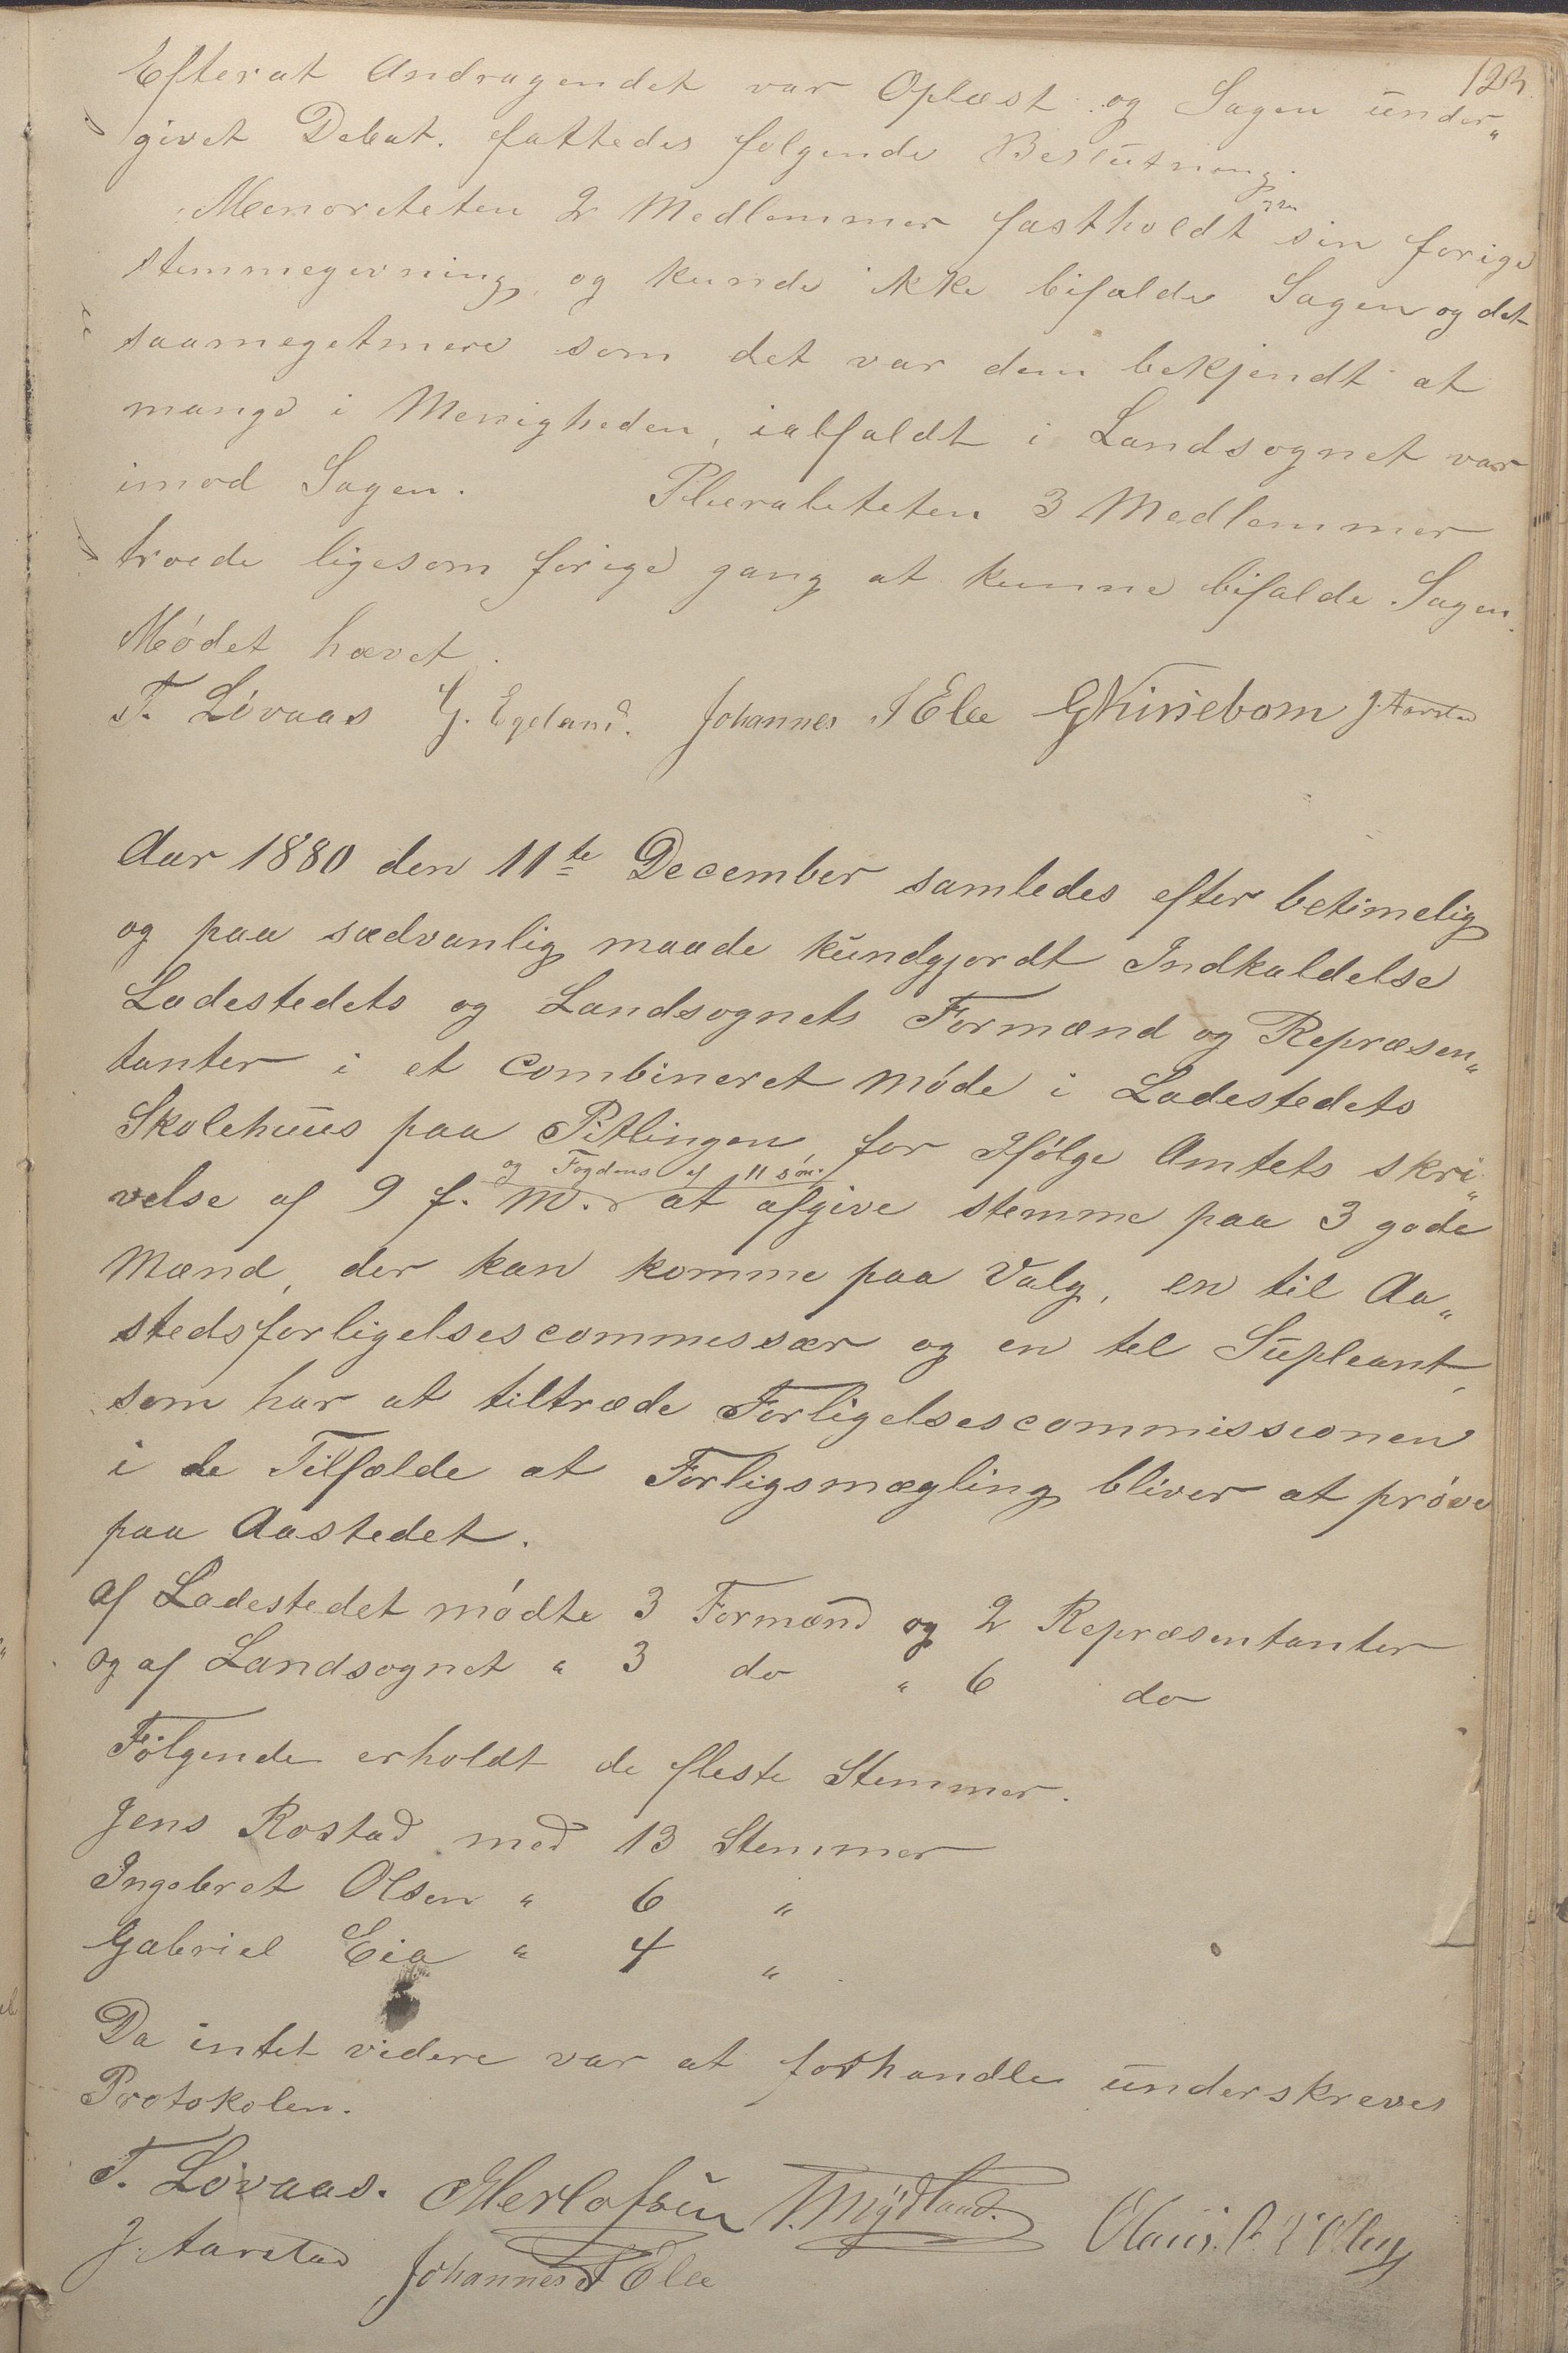 Efterat Andragendet var Oplæst og Sagen under„
givet Debat. fattedes følgende Beslutning.
Menoriteten 2 Medlemmer fastholdt sin forige
stemmegivning og kunde ikke bifalde Sagen og det
saameget mere som det var dem bekjendt at
mange i Menigheden, ialfaldt i Landsognet var
imod Sagen. Pluraliteten 3 Medlemmer
troede ligesom forige gang at kunne bifalde Sagen.
Mødet hævet.
T. Lövaas G. Egeland. Johannes S Eie J. Aarstad
Aar 1880 den 11te December samledes efter betimelig
og paa sædvanlig maade kundgjordt Indkaldelse
Ladestedets og Landsognets Formænd og Repræsen„
tanter i et Combineret Møde i Ladestedets
Skolehuus paa for Ifølge Amtets skri„
og Fogdens af 11 s. m.
velse af 9 f. M. at afgive stemme paa 3 gode
Mænd, der kan komme paa Valg, en til Aa„
stedsforligelsescommessær og en tel Supleant,
som har at tiltræde Forligelsescommissionen
i de Tilfælde at Forligsmægling bliver at prøve
paa Aastedet.
Af Ladestedet mødte 3 Formænd og 2 Repræsentanter
og af Landsognet „ 3 do „ 6 do
Følgende erholdt de fleste Stemmer.
Jens Rostad med 13 Stemmer
Ingebret Olsen „ 6 „
Gabriel Eia „ 4 „
Da intet videre var at forhandle underskreves
Protokolen.
T. Lövaas.
J. Aarstad Johannes S Eie